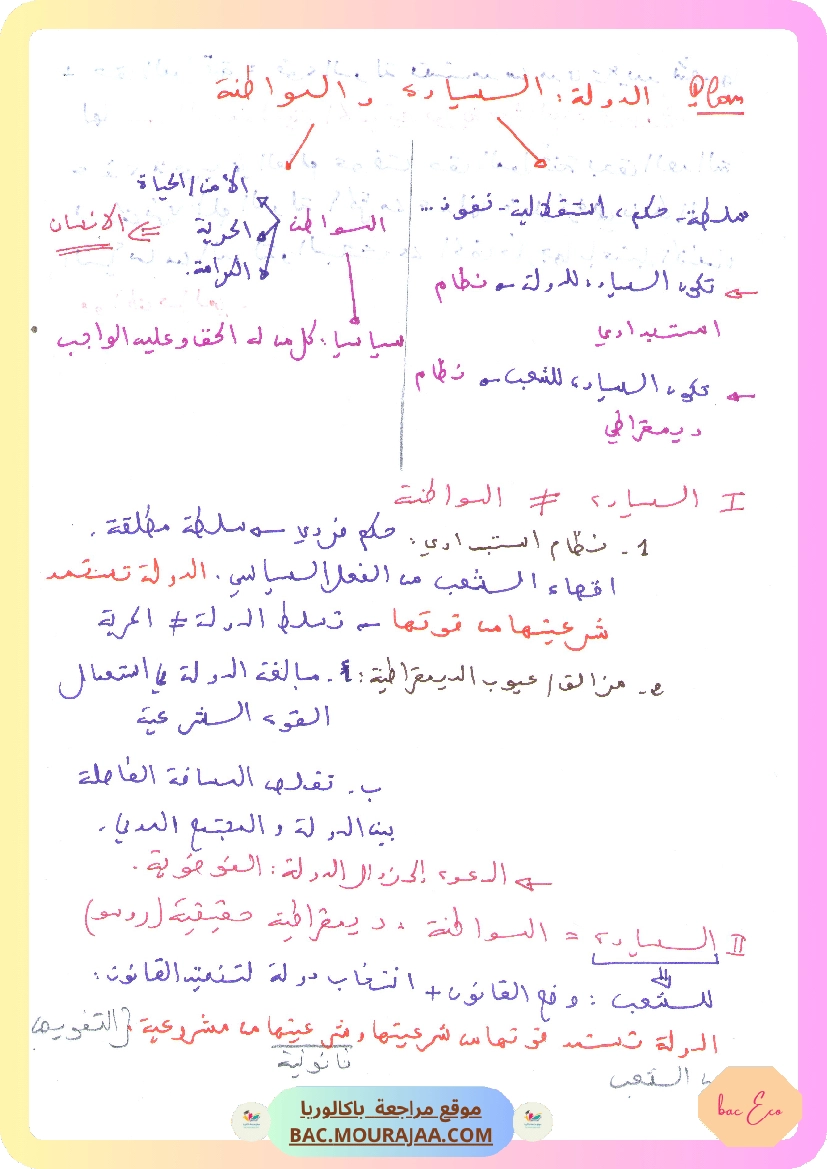 Plan الدولة: السيادة و المواطنة
سلطة - حكم، استقلالية - نفوذ...
← تكون السيادة للدولة ← نظام
استبدادي
← تكون السيادة للشعب ← نظام
ديمقراطي
الأمن/الحياة
المواطنة الحرية ⇐ الإنسان
الكرامة.
سياسيا: كل من له الحق وعليه الواجب
I السيادة ≠ المواطنة
1- نظام استبدادي: حكم فردي ← سلطة مطلقة.
اقصاء الشعب من الفعل السياسي. الدولة تستمد
شرعيتها من قوتها ← تسلط الدولة ≠ الحرية
2- مزالق/عيوب الديمقراطية: أ- مبالغة الدولة في استعمال
القوة الشرعية
ب- تقلص المسافة الفاصلة
بين الدولة و المجتمع المدني.
← الدعوة إلى زوال الدولة: الفوضوية.
II السيادة = المواطنة: ديمقراطية حقيقية (روسو)
⇓
للشعب: وضع القانون + انتخاب دولة لتنفيذ القانون:
الدولة تستمد قوتها من شرعيتها وشرعيتها من مشروعية {التفويض
قانونية
من الشعب
موقع مراجعة باكالوريا
BAC.MOURAJAA.COM
bac Eco